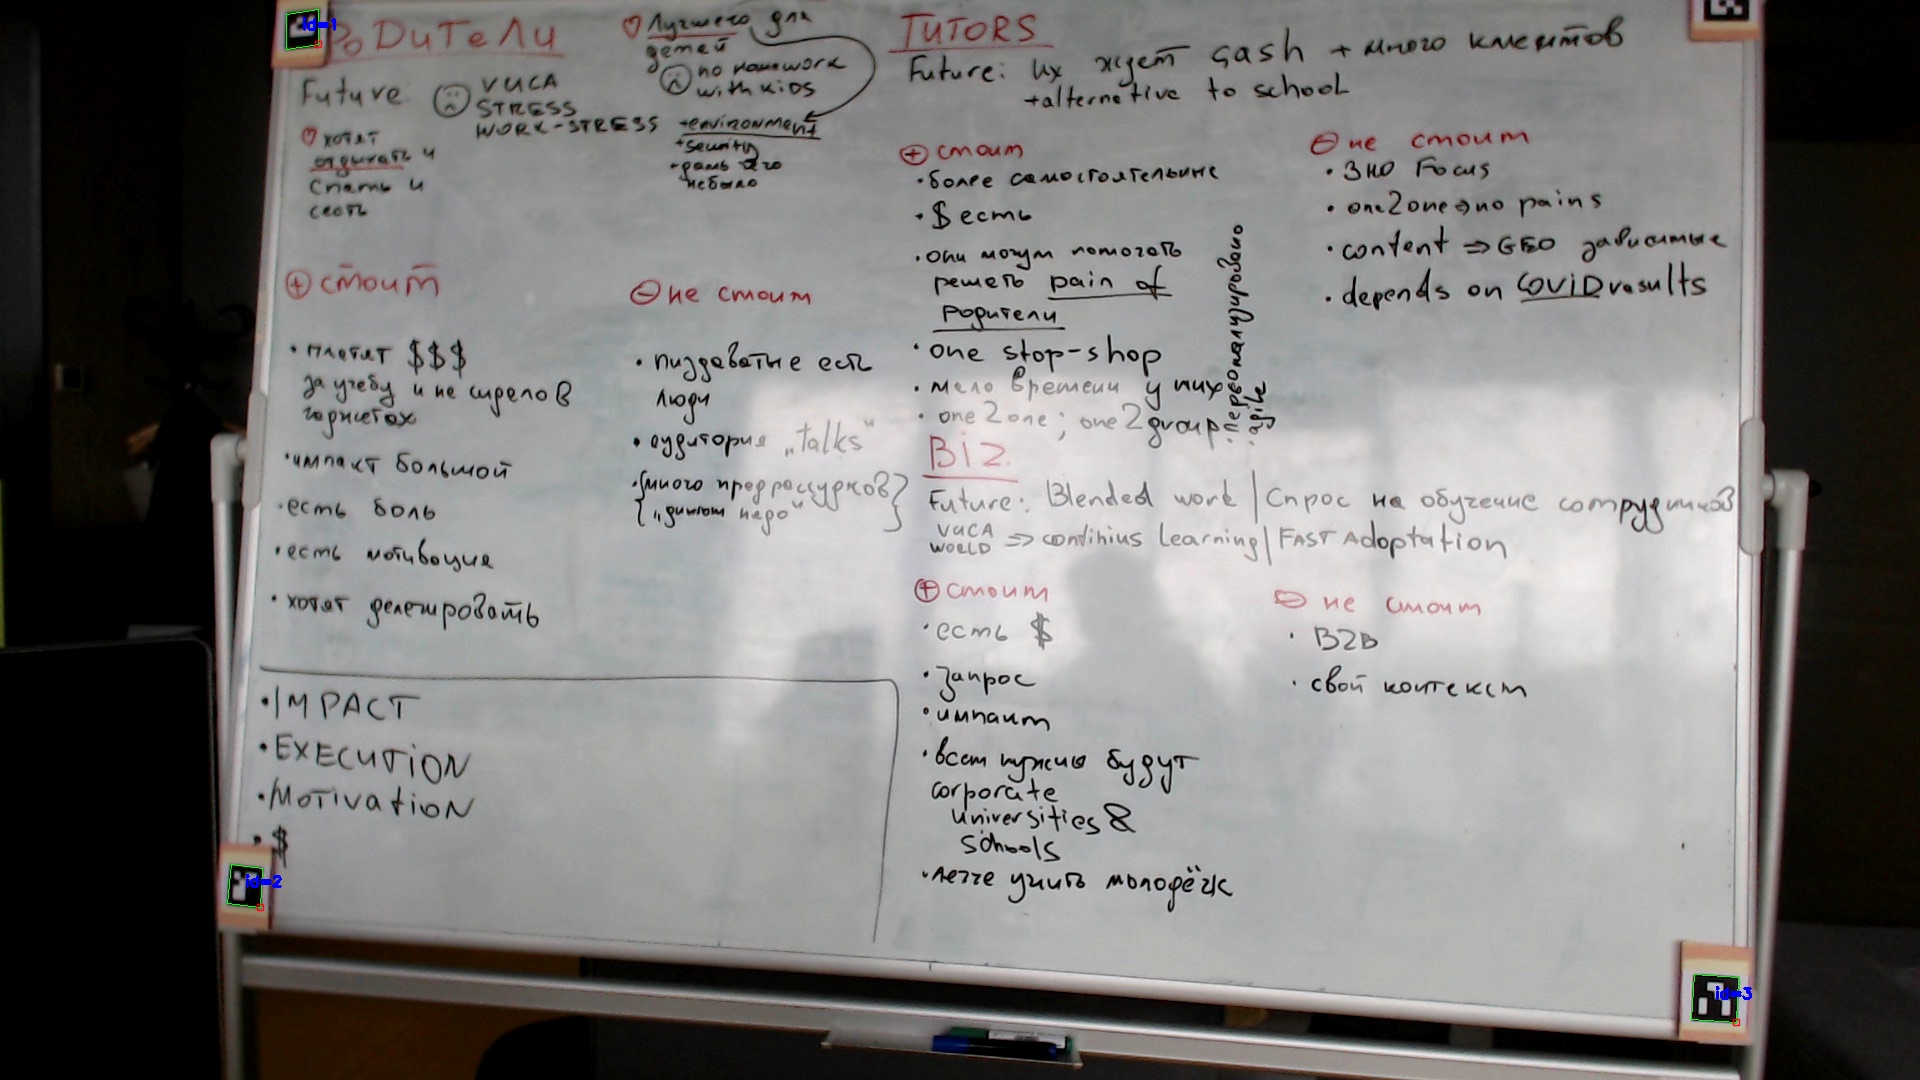 РОДИТЕЛИ
Future: VUCA
STRESS
WORK-STRESS
хотят
отдыхать и
спать и
сесть
Лучшего для
детей
no homework
with kids
+environment
+security
+дать чего
не было
⊕ стоит
• платят $$$
за учебу и не
• импакт большой
• есть боль
• есть мотивация
• хотят делегировать
⊖ не стоит
• пиздаватые есть
люди
• аудитория „talks“
• {много предрассудков}
{„диплом надо“}
• IMPACT
• EXECUTION
• MOTIVATION
• $
TUTORS
Future: их ждет cash + много клиентов
+alternative to school
⊕ стоит
• более самостоятельные
• $ есть
• они могут помогать
решать pain of
родители
• one stop-shop
• мало времени у них
• one2one; one2group
• agile
⊖ не стоит
• ЗНО Focus
• one2one => no pains
• content => GEO зависимые
• depends on COVID results
BIZ
Future: Blended work | Спрос на обучение сотрудников
VUCA
WORLD => continius Learning | FAST Adoptation
⊕ стоит
• есть $
• запрос
• импакт
• всем нужны будут
corporate
universities &
schools
• легче учить молодёж
⊖ не стоит
• B2B
• свой контекст
id=1
id=2
id=3